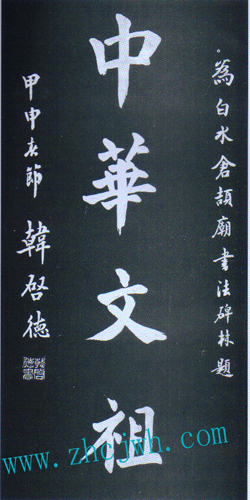 為白水倉頡廟書法碑林題
中華文祖
甲申春節
韓啓德
www.zhcjwh.com